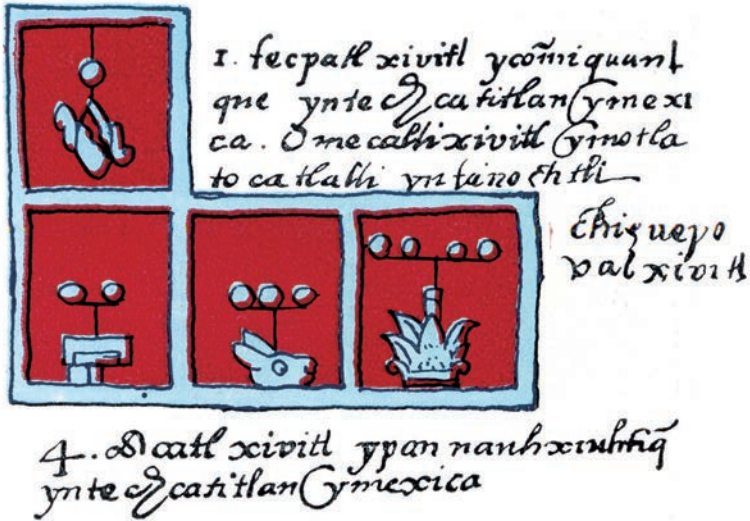 1. tecpatl xivitl ycōmiquani
que ynte  catitlan ymexi
ca. Omecalli xivitl ymotla
tocatlalli yn tenochtli
chiqueyo
val xivitl
4. Acatl xivitl ypan nauhxiuhtiq̄
ynte  catitlan ymexica